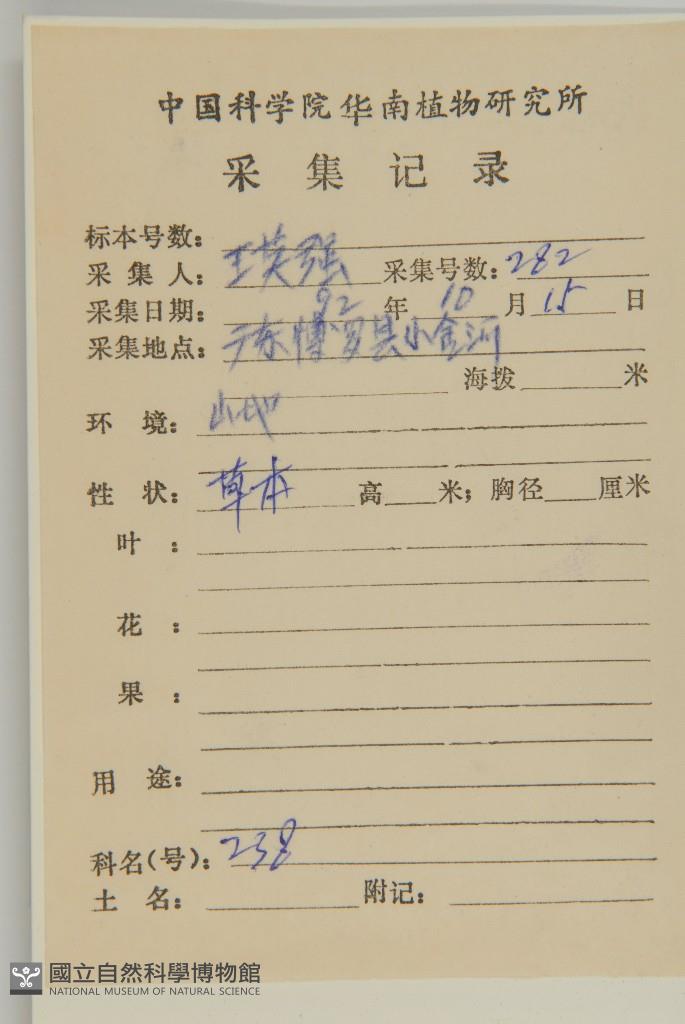 中国科学院华南植物研究所
采集记录
标本号数：
采集人：王英强 采集号数：282
采集日期：92年10月15日
采集地点：广东博罗县小金河
海拔 米
环境：山地
性状：草本 高 米；胸径 厘米
叶：
花：
果：
用途：
科名(号)：238
土名： 附记：
國立自然科學博物館
NATIONAL MUSEUM OF NATURAL SCIENCE